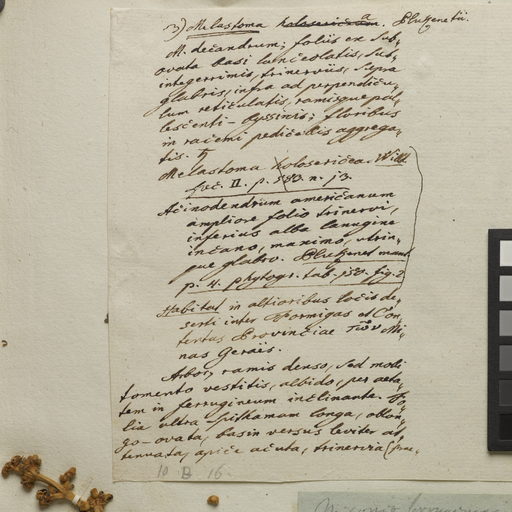 3) Melastoma holosericea. Plukenetii.
M. decandrum; foliis ex sub-
ovata basi lanceolatis, sub-
integerrimis, trinerviis, supra
glabris, infra ad perpendicu-
lum reticulatis, ramisque pu-
bescenti-byssinis; floribus
in racemi pedicellis aggrega-
tis. ♄
Melastoma holosericea. Willd
Spec. II. p. n. 13.
Acinodendrum americanum
ampliore folio trinervi,
inferius alba lanugine
incano, maximo, utrin-
que glabro. Plukenet mant
p. 4. phytogr. tab. 250. fig. 2
Habitat in altioribus locis de-
serti inter Formigas et Con-
tentas Provinciae τῶν Mi-
nas Geraës.
Arbor, ramis denso, sed molli
tomento vestitis, albido, per aeta-
tem in ferrugineum inclinante. Fo-
lia ultra spithamam longa, oblon-
go-ovata, basin versus leviter at-
tenuata, apice acuta, trinervia
10 B 16.